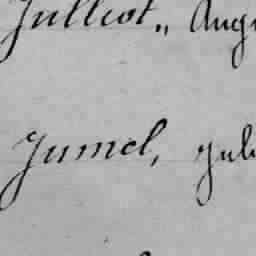 Julliot, Aug
Jumel, Jul